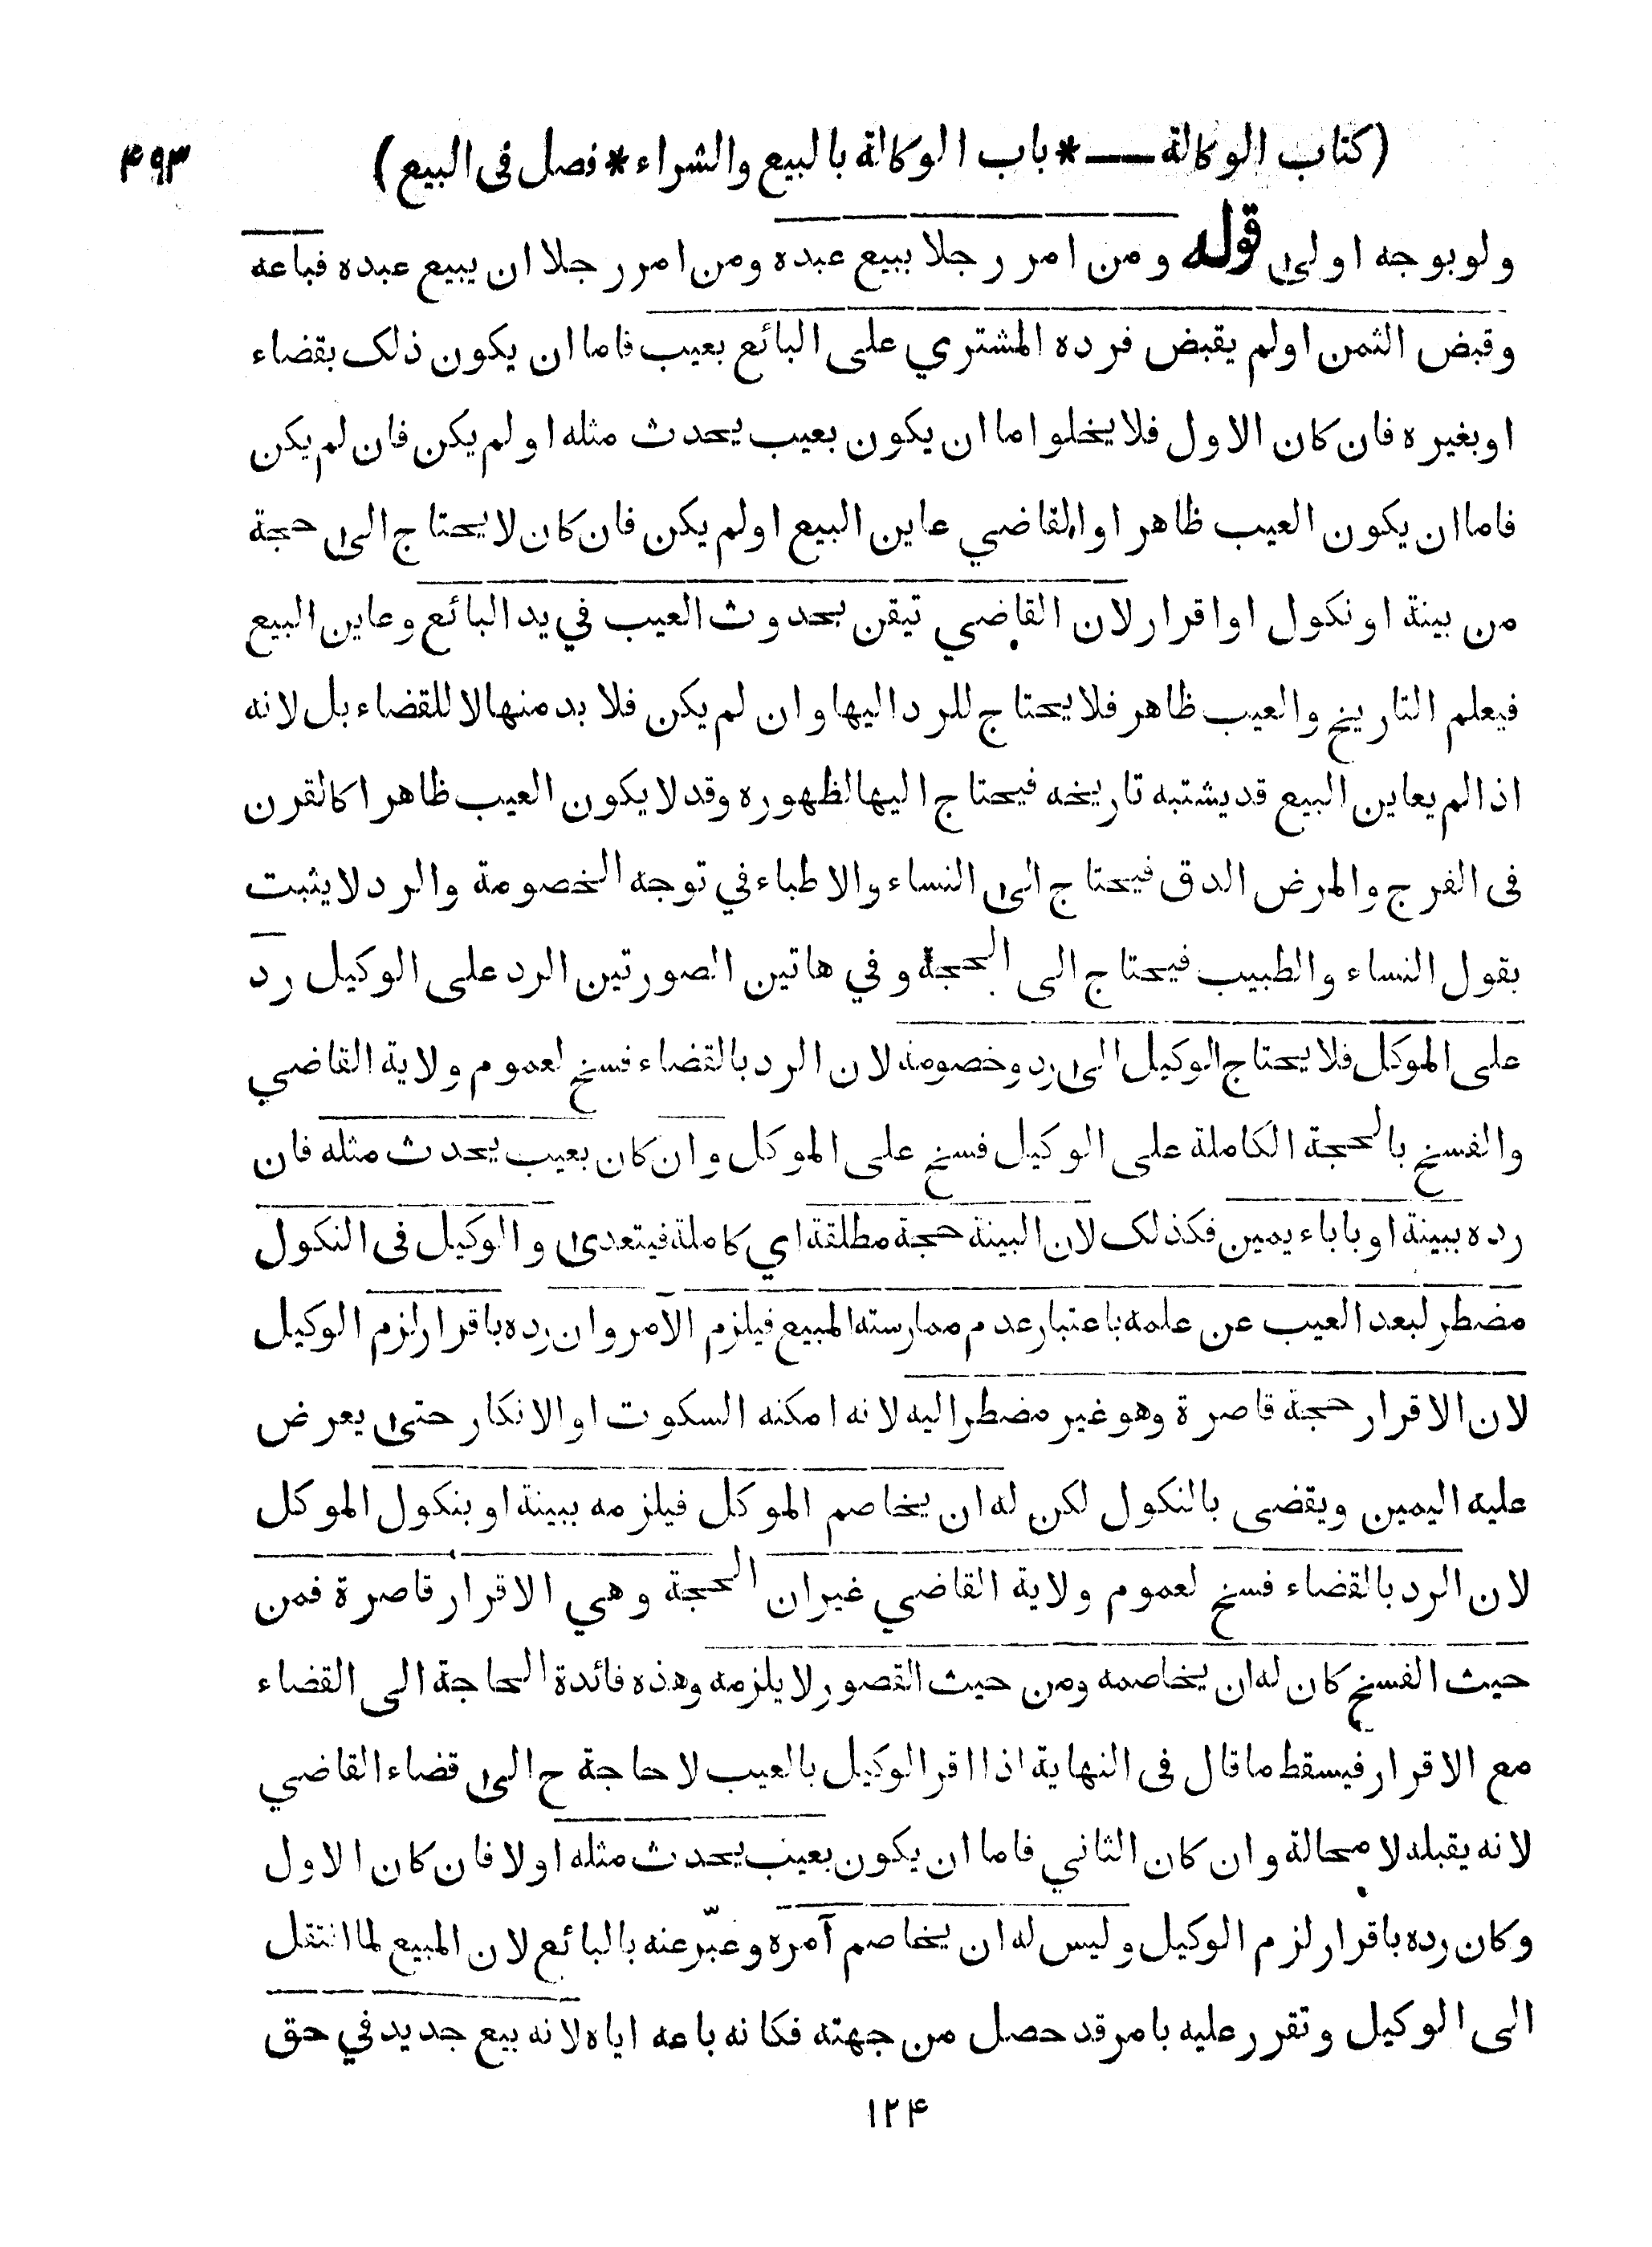 (كتاب الوكالة —— * باب الوكالة بالبيع والشراء * فصل فى البيع) ۴۹۳
ولو بوجه اولى قوله ومن امر رجلا ببيع عبده ومن امر رجلا ان يبيع عبده فباعه
وقبض الثمن اولم يقبض فرده المشتري على البائع بعيب فاما ان يكون ذلك بقضاء
اوبغيره فان كان الاول فلا يخلوا ما ان يكون بعيب يحدث مثله اولم يكن فان لم يكن
فاما ان يكون العيب ظاهر اوالقاضي عاين البيع اولم يكن فان كان لا يحتاج الى حجة
من بينة اونكول اواقرار لان القاضي تيقن بحدوث العيب في يد البائع وعاين البيع
فيعلم التاريخ والعيب ظاهر فلا يحتاج للرد اليها وان لم يكن فلا بد منها لا للقضاء بل لانه
اذالم يعاين البيع قد يشتبه تاريخه فيحتاج اليها لظهوره وقد لا يكون العيب ظاهرا كالقرن
فى الفرج والمرض الدق فيحتاج الى النساء والاطباء في توجه الخصومة والرد لا يثبت
بقول النساء والطبيب فيحتاج الى الحجة وفي هاتين الصورتين الرد على الوكيل رد
على الموكل فلا يحتاج الوكيل الى رد وخصومة لان الرد بالقضاء فسخ لعموم ولاية القاضي
والفسخ بالحجة الكاملة على الوكيل فسخ على الموكل وان كان بعيب يحدث مثله فان
رده ببينة اوباباء يمين فكذلك لان البينة حجة مطلقة اي كاملة فيتعدى والوكيل فى النكول
مضطر لبعد العيب عن علمه باعتبار عدم ممارسته المبيع فيلزم الآمر وان رده باقرار لزم الوكيل
لان الاقرار حجة قاصرة وهو غير مضطر اليه لانه امكنه السكوت اوالانكار حتى يعرض
عليه اليمين ويقضى بالنكول لكن له ان يخاصم الموكل فيلزمه ببينة اوبنكول الموكل
لان الرد بالقضاء فسخ لعموم ولاية القاضي غير ان الحجة وهي الاقرار قاصرة فمن
حيث الفسخ كان له ان يخاصمه ومن حيث القصور لا يلزمه وهذه فائدة الحاجة الى القضاء
مع الاقرار فيسقط ماقال فى النهاية اذا اقر الوكيل بالعيب لا حاجة ح الى قضاء القاضي
لانه يقبله لا محالة وان كان الثاني فاما ان يكون بعيب يحدث مثله اولا فان كان الاول
وكان رده باقرار لزم الوكيل وليس له ان يخاصم آمره وعبّر عنه بالبائع لان المبيع لما انتقل
الى الوكيل وتقرر عليه بامر قد حصل من جهته فكانه باعه اياه لانه بيع جديد في حق
۱۲۴